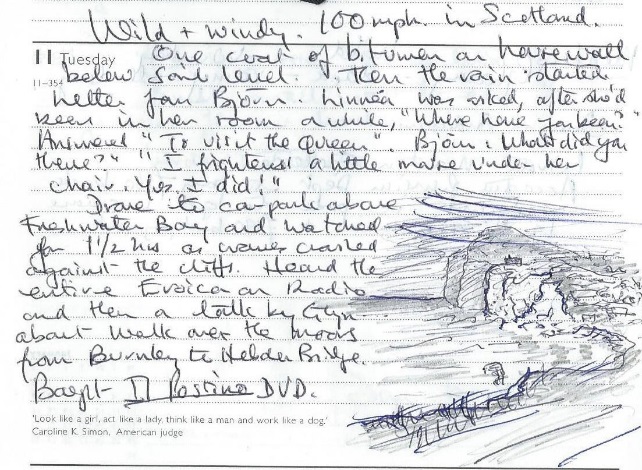 Wild + windy. 100 mph. in Scotland.
11 Tuesday
11-354
One coat of bitumen on house wall
below soil level. Then the rain started
Letter from Björn. Linnéa was asked, after she'd
been in her room a while, "Where have you been?"
Answered "To visit the Queen". Björn: What did you
there?" "I frightens! a little mouse under her
chair. Yes I did!"
Drove to car-park above
Freshwater Bay and watched
for 1 1/2 hrs as waves crashed
against the cliffs. Heard the
entire Eroica on Radio
and then a talk by Glyn
about walk over the moors
from Burnley to Hebden Bridge.
Bought Il Postino DVD.
'Look like a girl, act like a lady, think like a man and work like a dog.'
Caroline K. Simon, American judge